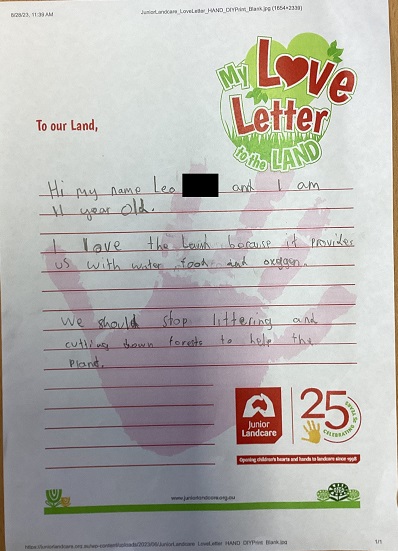 8/28/23, 11:39 AM
JuniorLandcare_LoveLetter_HAND_DIYPrint_Blank.jpg (1654×2339)
My Love
Letter
to the LAND
To our Land,
Hi my name Leo and I am
11 year old.
I love the Land because it provides
us with water food and oxygen.
We should stop littering and
cutting down forests to help the
planet.
Junior
Landcare
25
CELEBRATING 25 YEARS
Opening children's hearts and hands to landcare since 1998
www.juniorlandcare.org.au
1/1